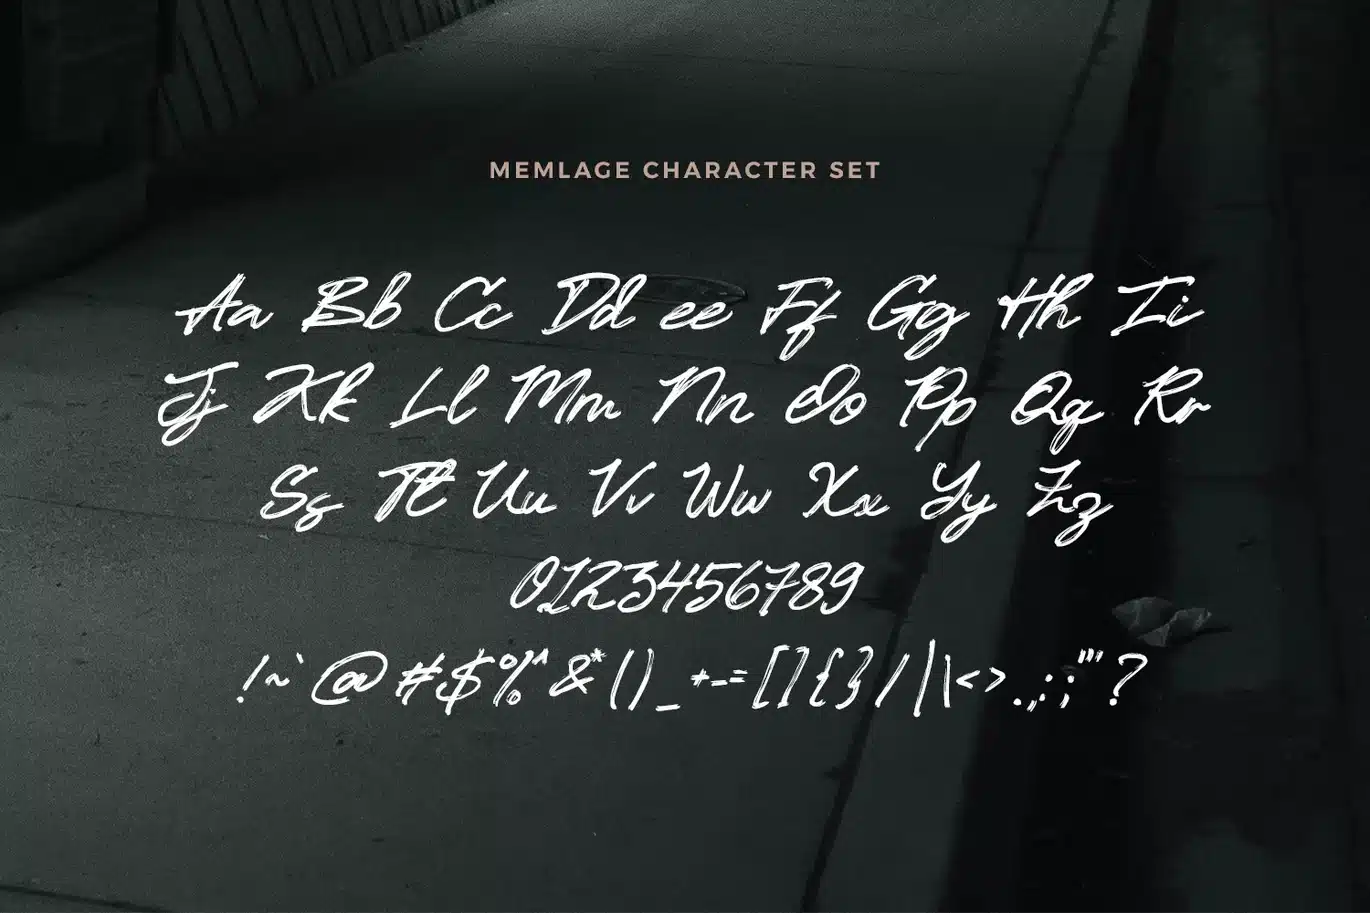 MEMLAGE CHARACTER SET
Aa Bb Cc Dd ee Ff Gg Hh Ii
Jj Kk Ll Mm Nn Oo Pp Qq Rr
Ss Tt Uu Vv Ww Xx Yy Zz
0123456789
!~` @#$%^&*()_+-=[]{}/|\<>.,:;"'?